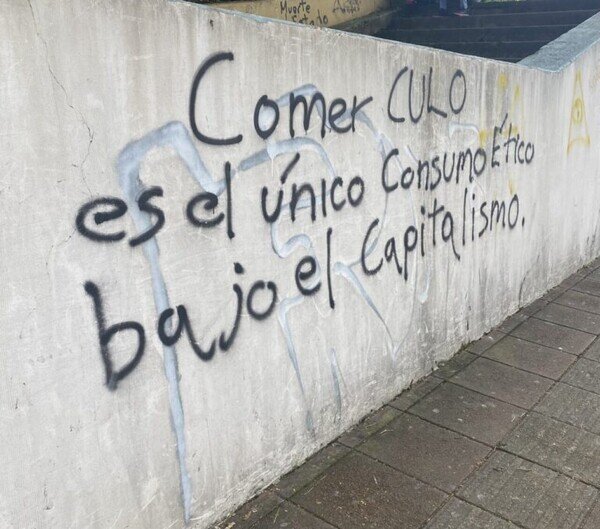 Muerte
Estado
Comer CULO
es el único Consumo Ético
bajo el Capitalismo.